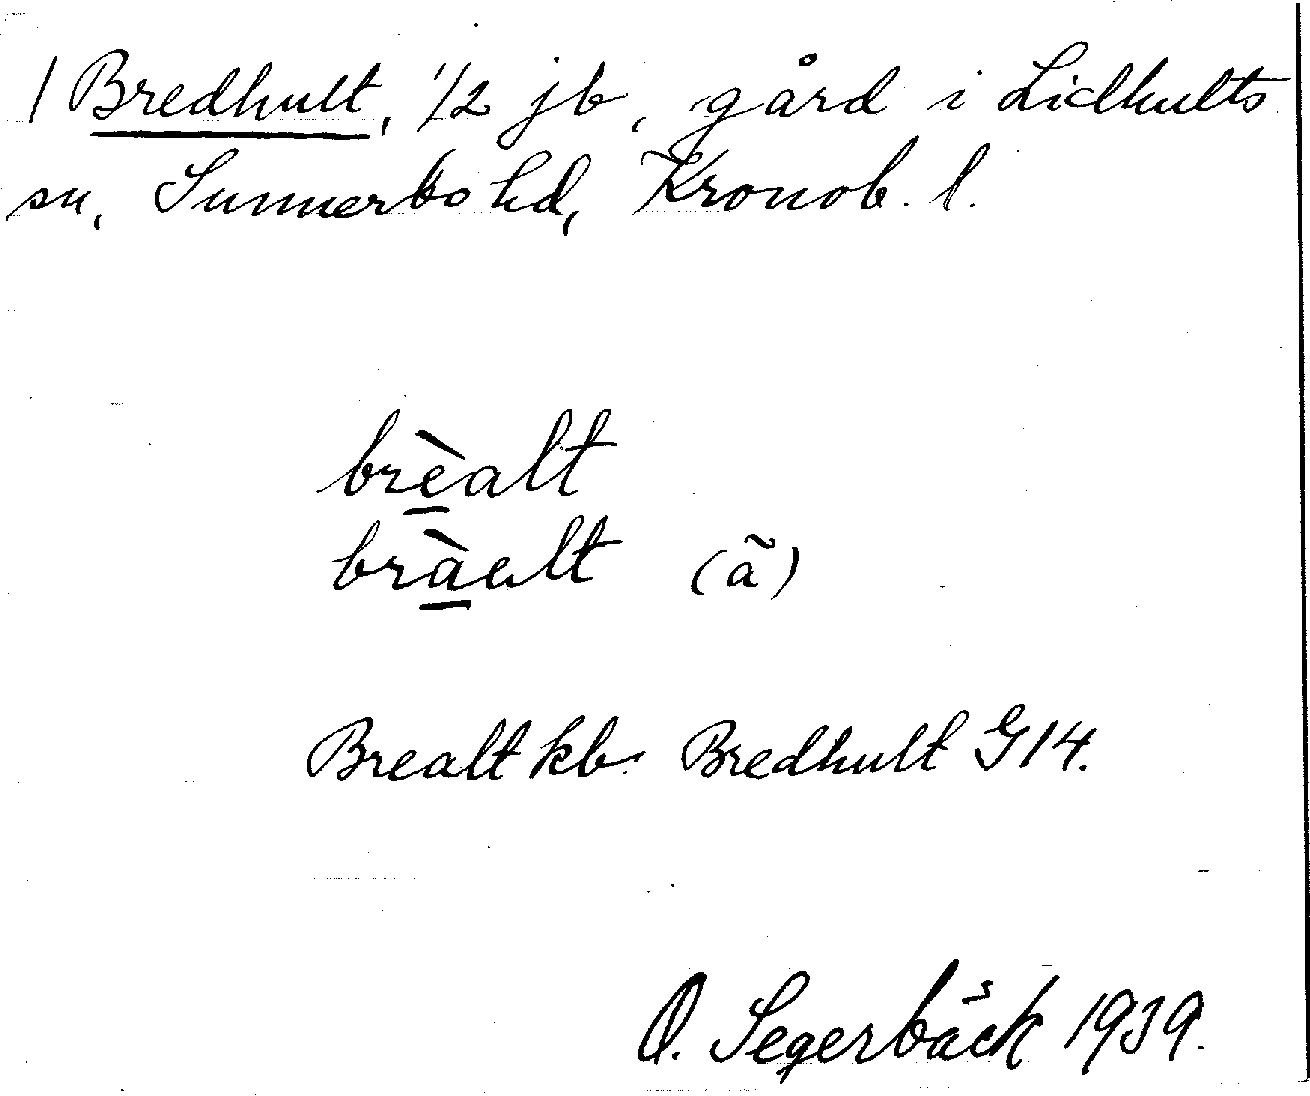 1 Bredhult, 1/2 jb, gård i Lidhults
sn, Sunnerbo hd, Kronob. l.
brèalt
bràalt (ã)
Brealt kb. Bredhult G 14.
O. Segerbäck 1939.